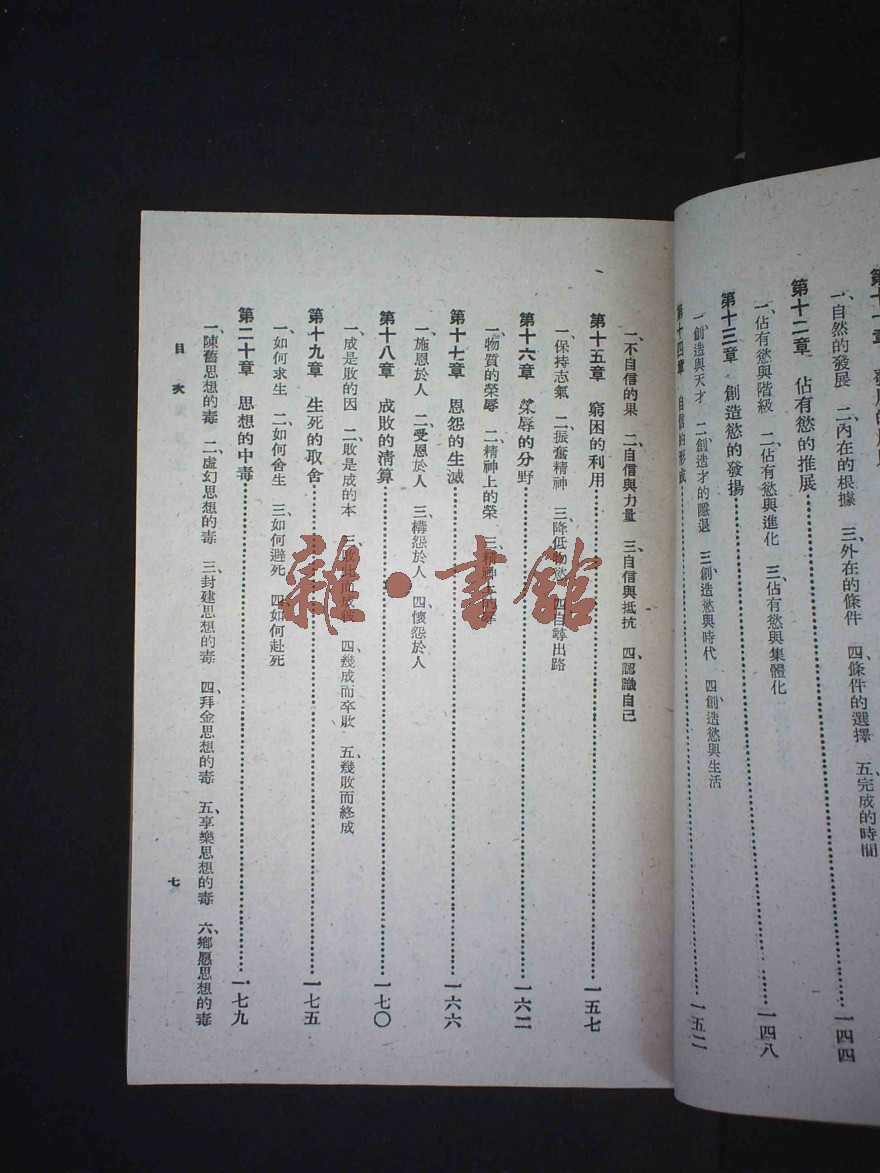 一、自然的發展　二、內在的根據　三、外在的條件　四、條件的選擇　五、完成的時間
第十二章　佔有慾的推展……一四四
一、佔有慾與階級　二、佔有慾與進化　三、佔有慾與集體化
第十三章　創造慾的發揚……一四八
一、創造與天才　二、創造才的隱退　三、創造慾與時代　四、創造慾與生活
第十四章　自信的形成……一五二
一、不自信的果　二、自信與力量　三、自信與抵抗　四、認識自己
第十五章　窮困的利用……一五七
一、保持志氣　二、振奮精神　三、降低物慾　四、自尋出路
第十六章　榮辱的分野……一六二
一、物質的榮辱　二、精神上的榮
第十七章　恩怨的生滅……一六六
一、施恩於人　二、受恩於人　三、構怨於人　四、懷怨於人
第十八章　成敗的清算……一七〇
一、成是敗的因　二、敗是成的本　三、敗此而成彼　四、幾成而卒敗　五、幾敗而終成
第十九章　生死的取舍……一七五
一、如何求生　二、如何舍生　三、如何避死　四、如何赴死
第二十章　思想的中毒……一七九
一、陳舊思想的毒　二、虛幻思想的毒　三、封建思想的毒　四、拜金思想的毒　五、享樂思想的毒　六、鄉愿思想的毒
目次
七
雜·書館